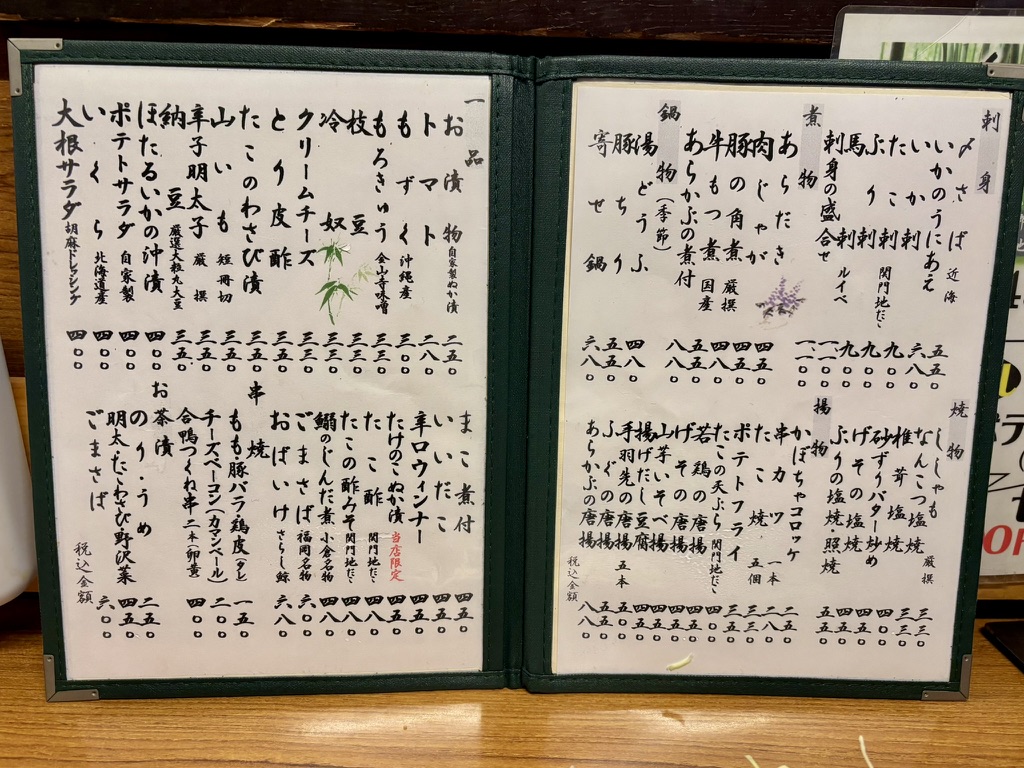 刺身
〆さば 近海 五五〇
いかのうにあえ 六八〇
いか刺 九〇〇
たこ刺 関門地だこ 九〇〇
ぶり刺 九〇〇
馬刺 ルイベ 一一〇〇
刺身の盛合せ 一一〇〇
煮物
あらたき 四五〇
肉じゃが 四五〇
豚の角煮 厳撰 四八〇
牛もつ煮 国産 五五〇
あらかぶの煮付 八八〇
鍋物(季節)
湯どうふ 四八〇
豚ちり 五五〇
寄せ鍋 六八〇
焼物
ししゃも 三三〇
なんこつ塩焼 厳撰 三三〇
椎茸塩焼 四〇〇
砂ずりバター炒め 四五〇
げその塩焼 四五〇
ぶりの塩焼 照焼 五五〇
揚物
かぼちゃコロッケ 二五〇
串カツ 一本 二八〇
たこ焼 五個 三五〇
ポテトフライ 三五〇
たこの天ぷら 関門地だこ 四〇〇
若鶏の唐揚 四五〇
げその唐揚 四五〇
山芋いそべ揚 四五〇
揚げだし豆腐 四五〇
手羽先の唐揚 五本 五〇〇
ふぐの唐揚 八五〇
あらかぶの唐揚 八八〇
税込金額
一品
お漬物 自家製ぬか漬 二五〇
トマト 二八〇
もずく 沖縄産 三〇〇
もろきゅう 金山寺味噌 三三〇
枝豆 三三〇
冷奴 三三〇
クリームチーズ 三三〇
とり皮酢 三五〇
たこのわさび漬 三五〇
山いも 短冊切 三五〇
辛子明太子 厳撰 三五〇
納豆 厳選大粒丸大豆 三五〇
ほたるいかの沖漬 四〇〇
ポテトサラダ 自家製 四〇〇
いくら 北海道産 四〇〇
大根サラダ 胡麻ドレッシング 四〇〇
まこ煮付 四五〇
いいだこ 四五〇
辛口ウィンナー 四五〇
たけのこぬか漬 当店限定 四五〇
たこ酢 関門地だこ 四八〇
たこの酢みそ 関門地だこ 四八〇
鰯のじんだ煮 小倉名物 四八〇
ごまさば 福岡名物 六〇〇
おばいけ さらし鯨 六八〇
串焼
もも豚バラ鶏皮(タレ) 一五〇
チーズベーコン(カマンベール) 二〇〇
合鴨つくね串 二本(卵黄) 四〇〇
お茶漬
のり・うめ 二五〇
明太・たこわさび・野沢菜 四五〇
ごまさば 六〇〇
税込金額